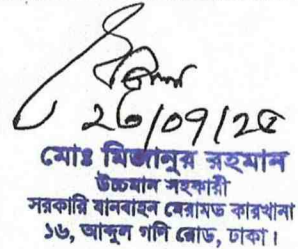 ২৩/০৭/২৫
মোঃ মিজানুর রহমান
উচ্চমান সহকারী
সরকারি যানবাহন মেরামত কারখানা
১৬, আব্দুল গণি রোড, ঢাকা।